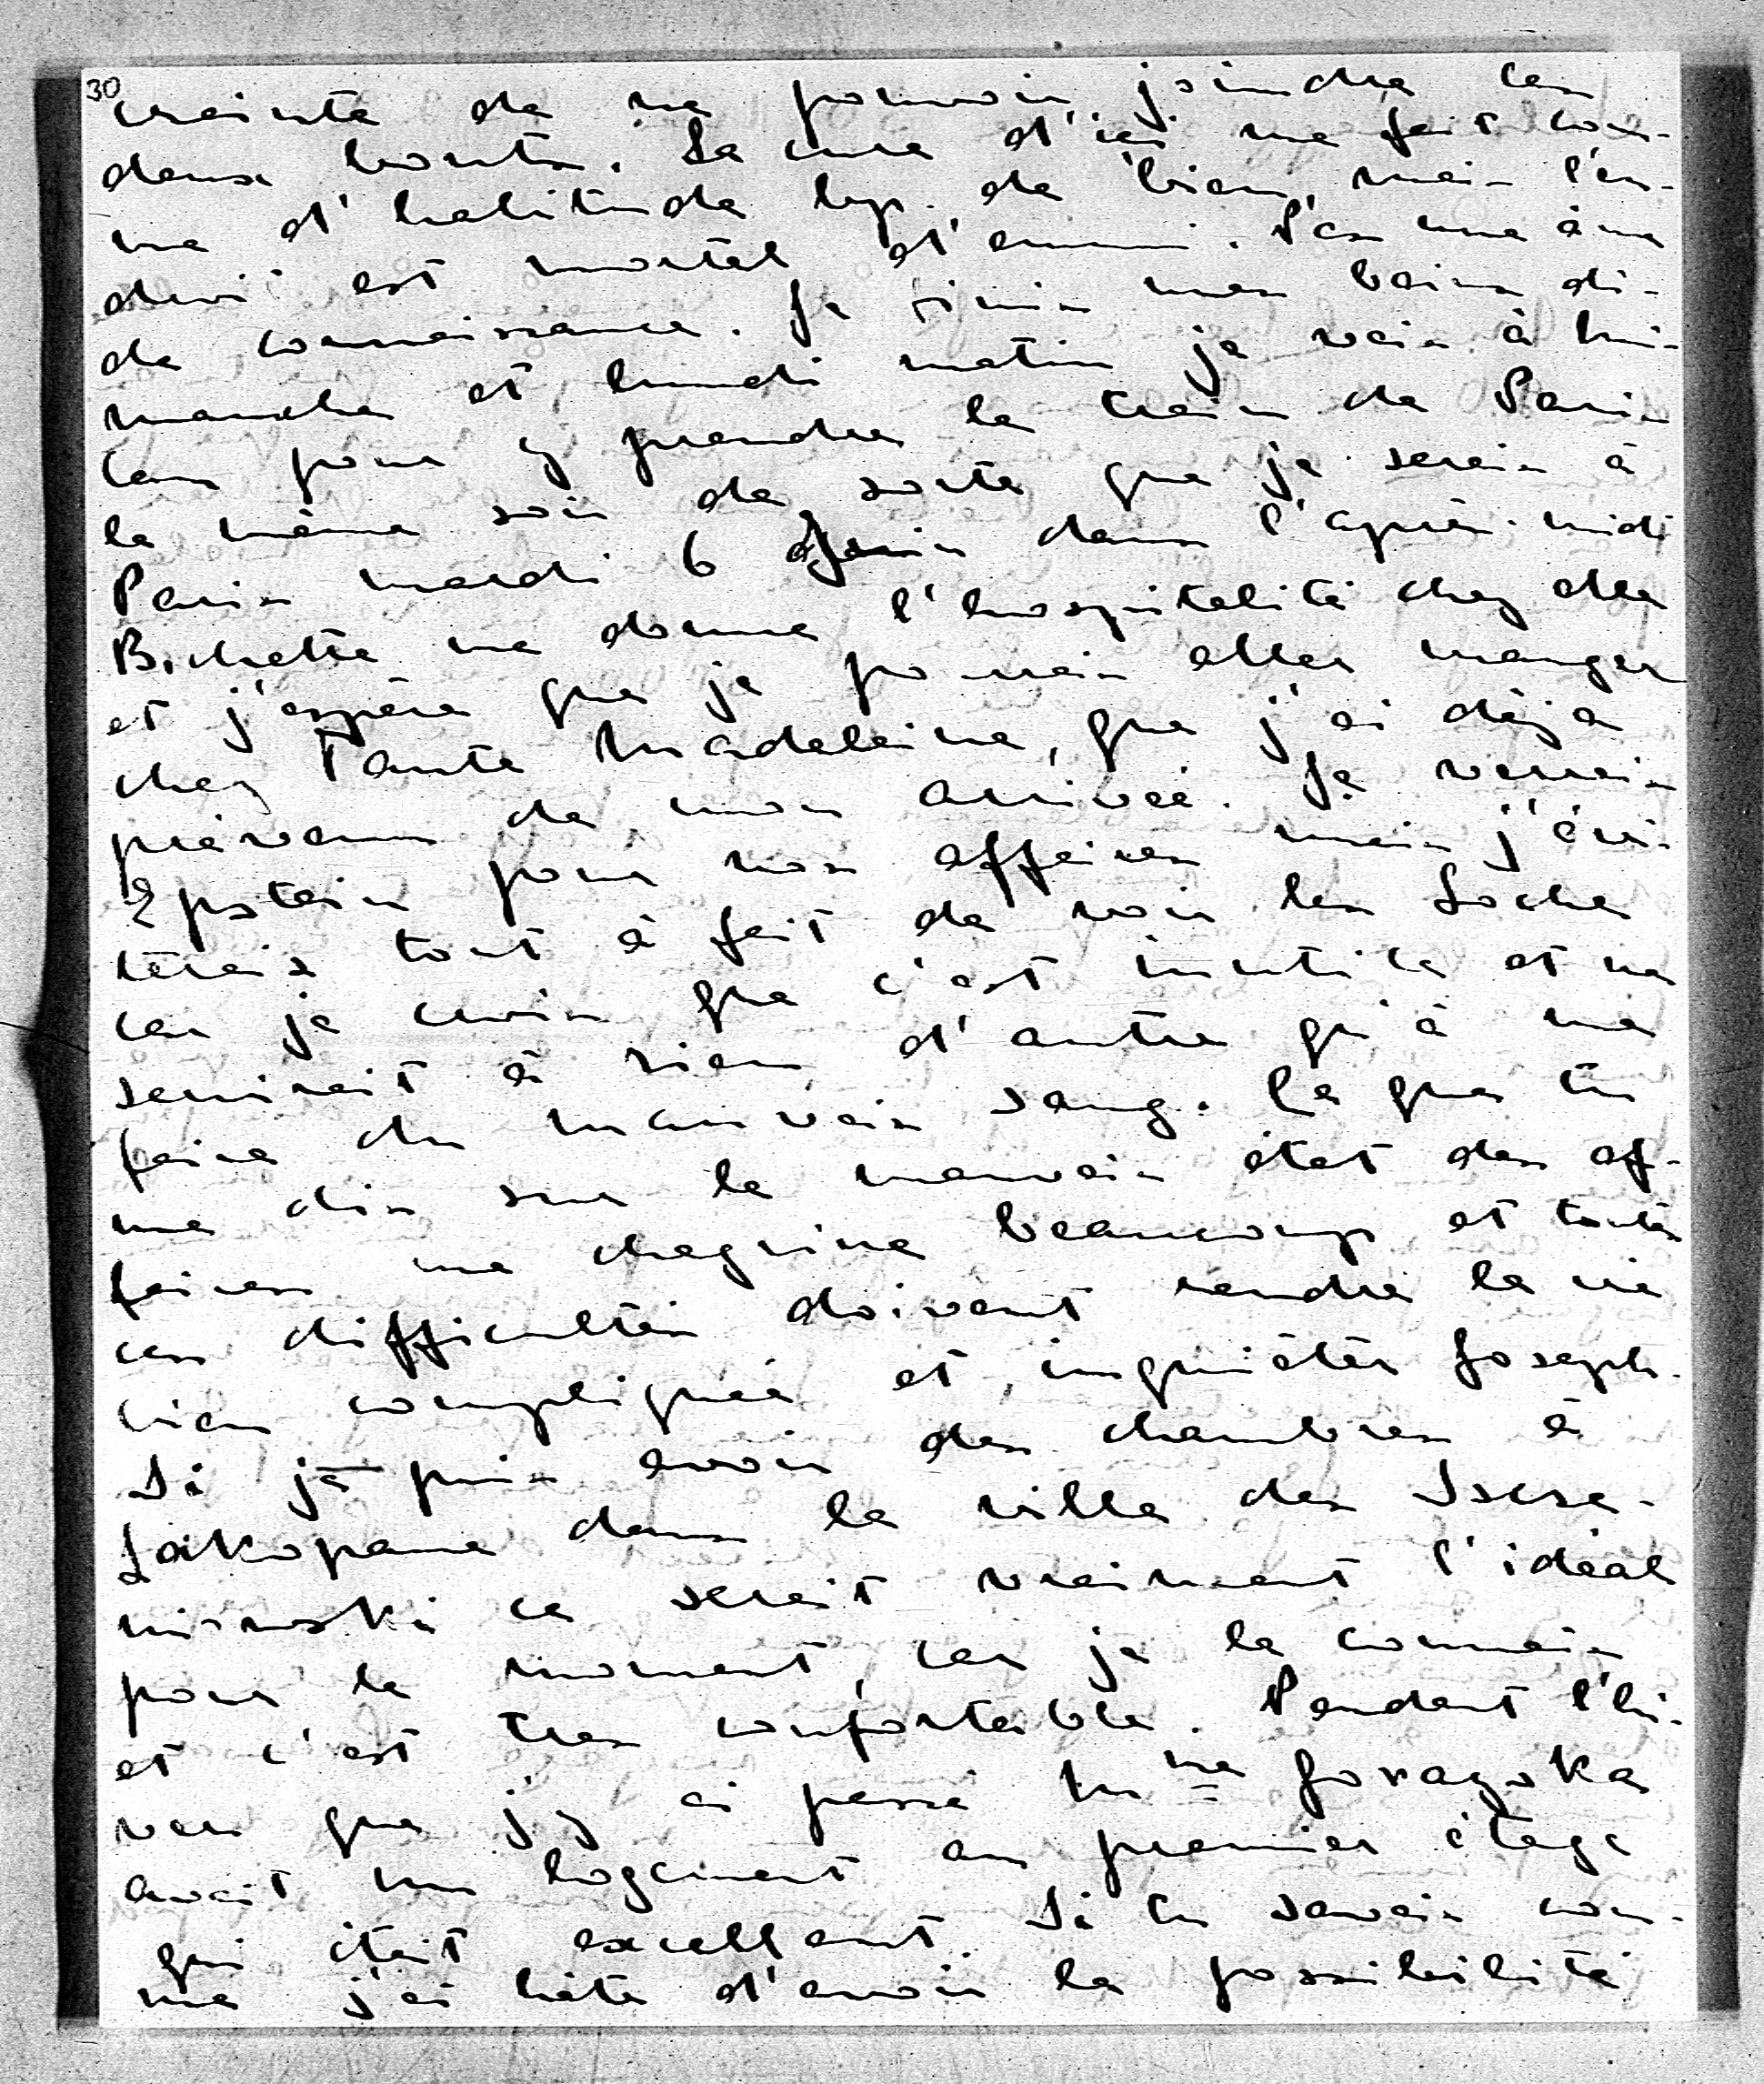 30
crainte de ne pouvoir joindre les
deux bouts. La cure d'ici me fait com-
me d'habitude bcp. de bien, mais l'en-
droit est mortel d'ennui. Pas une âme
de connaissance. Je finis mes bains di-
manche et lundi matin je vais à Mi-
lan pour y prendre le train de Paris
le même soir de sorte que je serais à
Paris mardi 6 dans l'après-midi
Bichette me donne l'hospitalité chez elle
et j'espère que je pourrais aller manger
chez Tante Madeleine, que j'ai déjà
prévenu de mon arrivée. Je verrais
Epstein pour nos affaires mais j'évi-
terais tout à fait de voir les Loche
car je crois que c'est inutile et ne
servirait à rien d'autre qu'à me
faire du mauvais sang. Ce que tu
me dis sur le mauvais état des af-
faires me chagrine beaucoup et toutes
ces difficultés doivent rendre la vie
bien compliquée et inquiéter Joseph.
Si je puis avoir des chambres à
Zakopane dans la villa des
ce serait vraiment l'idéal
pour le moment, car je la connais
et c'est très confortable. Pendant l'hi-
ver que j'y ai passé Mme
avait un logement au premier étage
qui était excellent. Si tu savais com-
me j'ai hâte d'avoir la possibilité